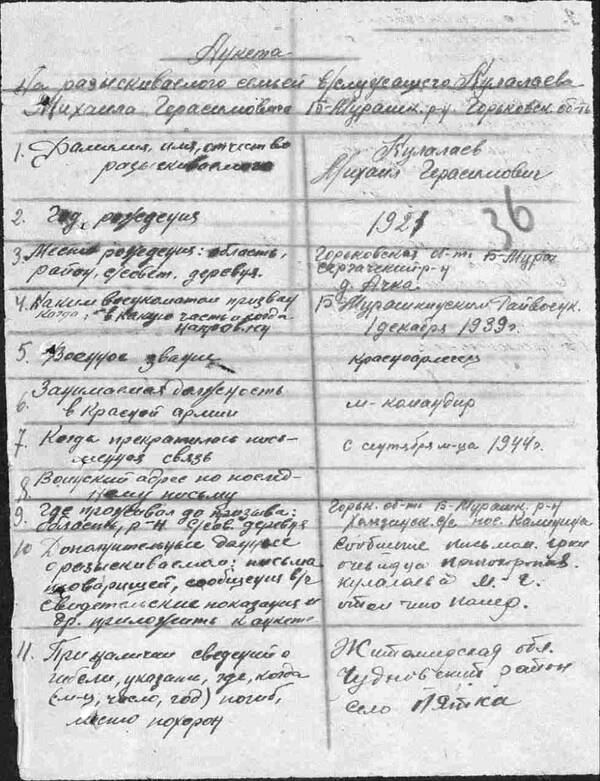 Анкета
На разыскиваемого семьей в/служащего Кулалаева
Михаила Герасимовича Б-Мурашк. р-у Горьковск. об-ть
1. Фамилия, имя, отчество
разыскиваемого
Кулалаев
Михаил Герасимович
2. Год рождения
1921
36
3. Место рождения: область,
район, с/совет. деревня.
Горьковская об-ть Б-Мура
Сергачский р-н
д. Ачка.
4. Каким военкоматом призван
когда, в какую часть и когда
направлен
Б-Мурашкинским Райвоенк.
1 декабря 1939 г.
5. Военное звание
красноармеец
6. Занимаемая должность
в Красной армии
м-командир
7. Когда прекратилась пись-
менная связь
с сентября м-ца 1944 г.
8. Воинский адрес по послед-
нему письму
9. Где проживал до призыва:
область, р-н с/сов. деревня
Горьк. об-ть Б-Мурашк. р-н
с/с пос. Калинина
10 Дополнительные данные
о разыскиваемом: письма
товарищей, сообщения в/ч
свидетельские показания и
др. приложить к анкете
Сообщение письмом
очевидца
Кулалаева М. Г.
о том что помер.
11. При наличии сведений о
гибели, указать, где, когда
(м-ц, число, год) погиб,
место похорон
Житомирская обл.
Чудновский район
село Пятка